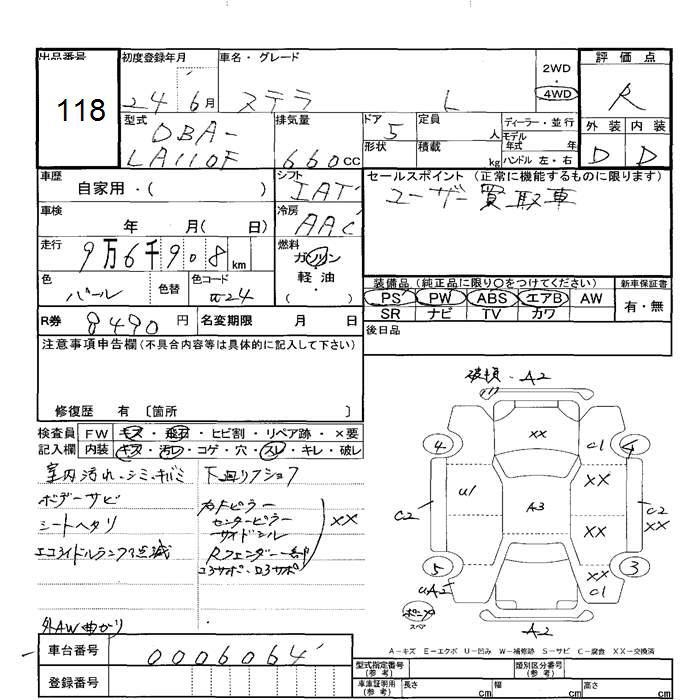 出品番号 初度登録年月 車名・グレード 2WD・4WD 評価点
118 24 6月 ステラ L R
型式 DBA-LA110F 排気量 660cc ドア 5 形状 定員 人 積載 kg ディーラー・並行 モデル年式 年 ハンドル 左・右 外装 D 内装 D
車歴 自家用・( ) シフト IAT セールスポイント (正常に機能するものに限ります)
ユーザー買取車
車検 年 月( 日) 冷房 AAC
走行 9万6千908km 燃料 ガソリン 軽油 ・( )
色 パール 色替 色コード W24
装備品 (純正品に限り○をつけてください) 新車保証書
PS PW ABS エアB AW 有・無
SR ナビ TV カワ
R券 8490円 名変期限 月 日 後日品
注意事項申告欄(不具合内容等は具体的に記入して下さい)
修復歴 有 〔箇所
検査員 FW キズ・飛石・ヒビ割・リペア跡・×要
記入欄 内装 キズ・汚レ・コゲ・穴・スレ・キレ・破レ
室内汚れ・シミ・キバミ 下回りクショフ
ボデーサビ
シートヘタリ
エコアイドルランプ点滅
カドピラー
センターピラー
サイドシル
Rフェンダー一部
XX
コアサポ・ロアサポ
外AW曲がり
破損・A2
XX
4 C1 4
U1 XX
C2 A3 C2
XX XX
5 XX 3
UA2 C1
スペア
A2
A-キズ E-エクボ U-凹み W-補修跡 S-サビ C-腐食 XX-交換済
車台番号 0006064
登録番号
型式指定番号(参考) 類別区分番号(参考)
車庫証明用(参考) 長さ cm 幅 cm 高さ cm